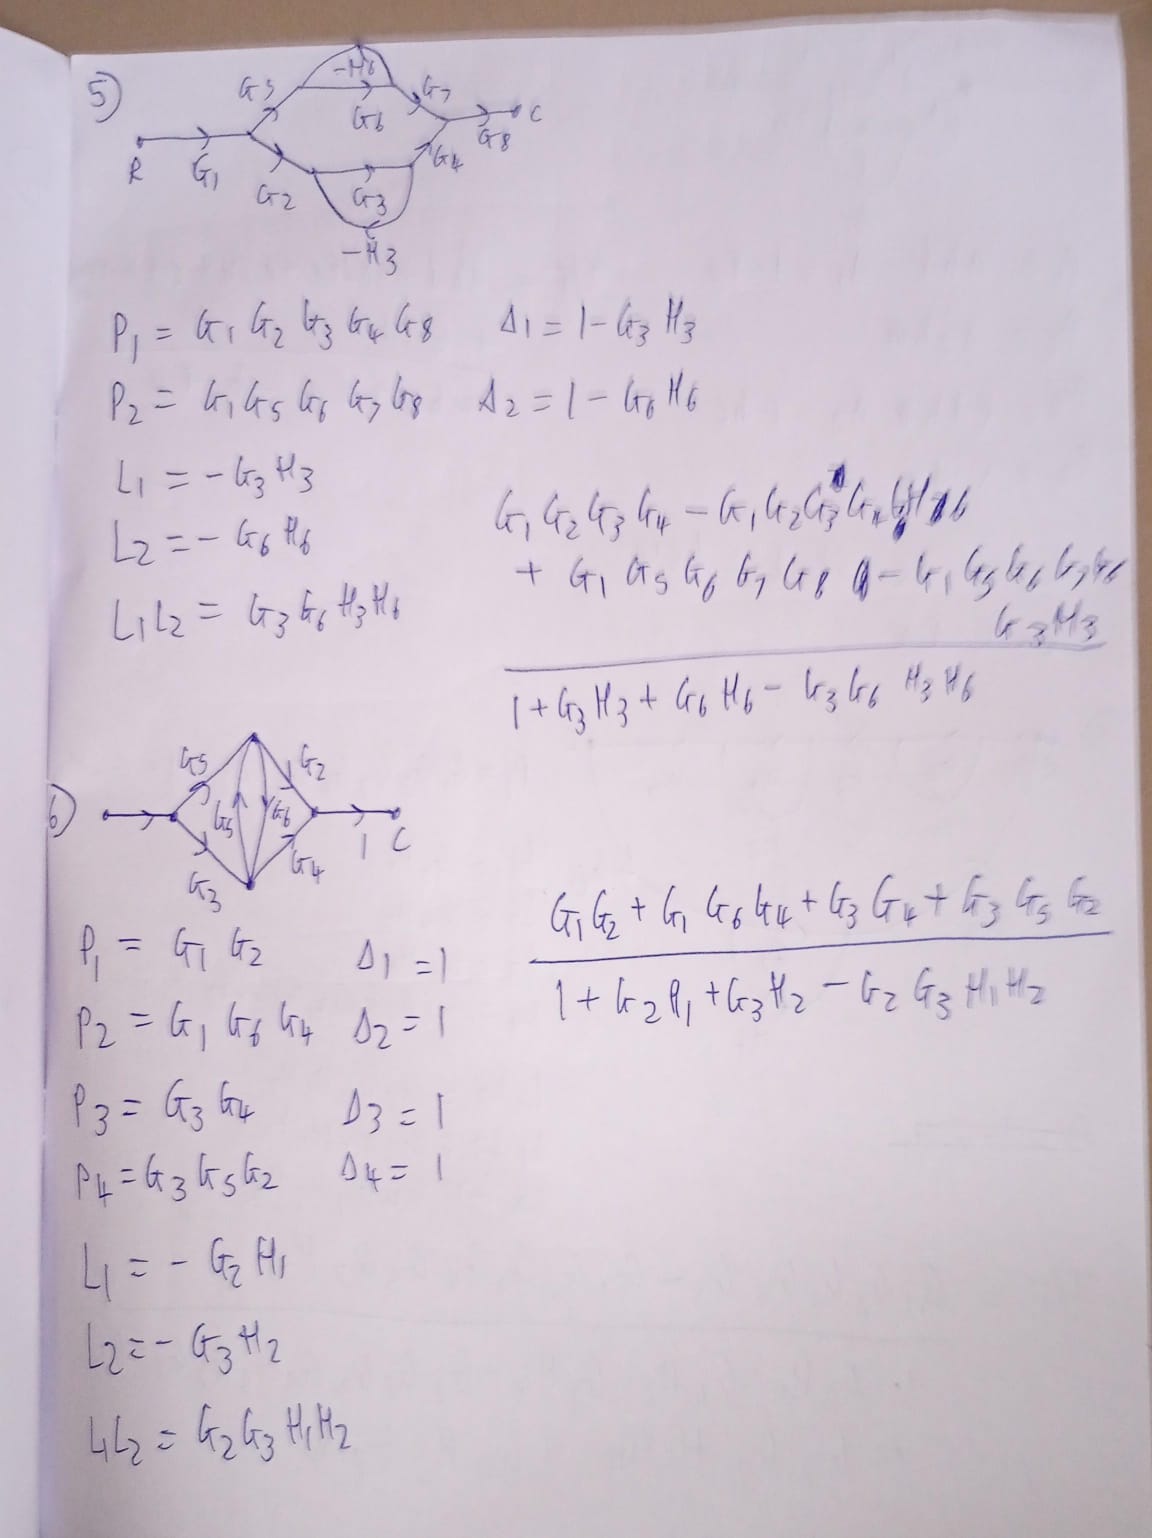 5)
-H6
G5 G7
G6 C
G8
R G1 G4
G2 G3
-H3
P1 = G1 G2 G3 G4 G8 Δ1 = 1 - G3 H3
P2 = G1 G5 G6 G7 G8 Δ2 = 1 - G6 H6
L1 = - G3 H3
L2 = - G6 H6
L1L2 = G3 G6 H3 H6
G1 G2 G3 G4 - G1 G2 G3 G4
+ G1 G5 G6 G7 G8 - G1 G5 G6 G7 G8
G3 H3
1 + G3 H3 + G6 H6 - G3 G6 H3 H6
6)
G5 G2
G5 G6
1 C
G3 G4
P1 = G1 G2 Δ1 = 1
P2 = G1 G6 G4 Δ2 = 1
P3 = G3 G4 Δ3 = 1
P4 = G3 G5 G2 Δ4 = 1
L1 = - G2 H1
L2 = - G3 H2
L1L2 = G2 G3 H1 H2
G1 G2 + G1 G6 G4 + G3 G4 + G3 G5 G2
1 + G2 H1 + G3 H2 - G2 G3 H1 H2